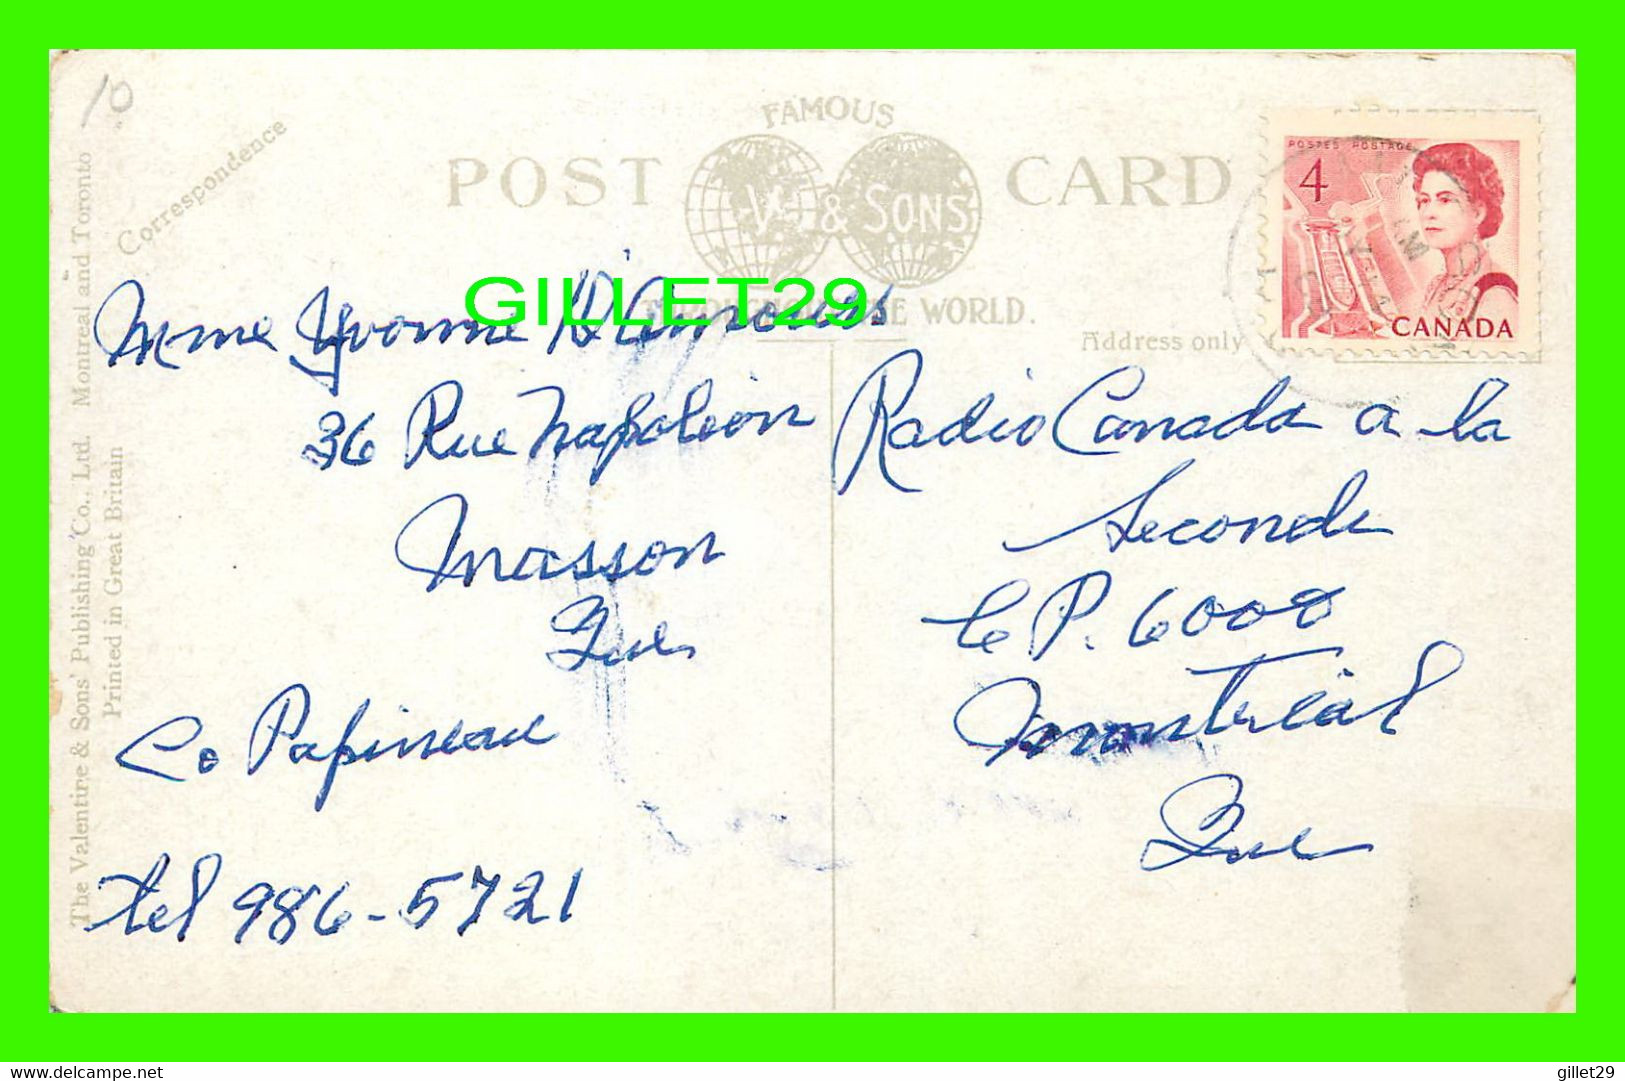 10
Correspondence
FAMOUS
POST CARD
V. & SONS
THROUGHOUT THE WORLD.
Address only
POSTES POSTAGE
4
CANADA
GILLET29
Mme Yvonne
36 Rue Napoléon
Masson
Que
Co Papineau
tel 986-5721
Radio Canada a la
Seconde
C P. 6000
Montréal
Que
The Valentine & Sons' Publishing Co., Ltd. Montreal and Toronto
Printed in Great Britain
delcampe.net
gillet29